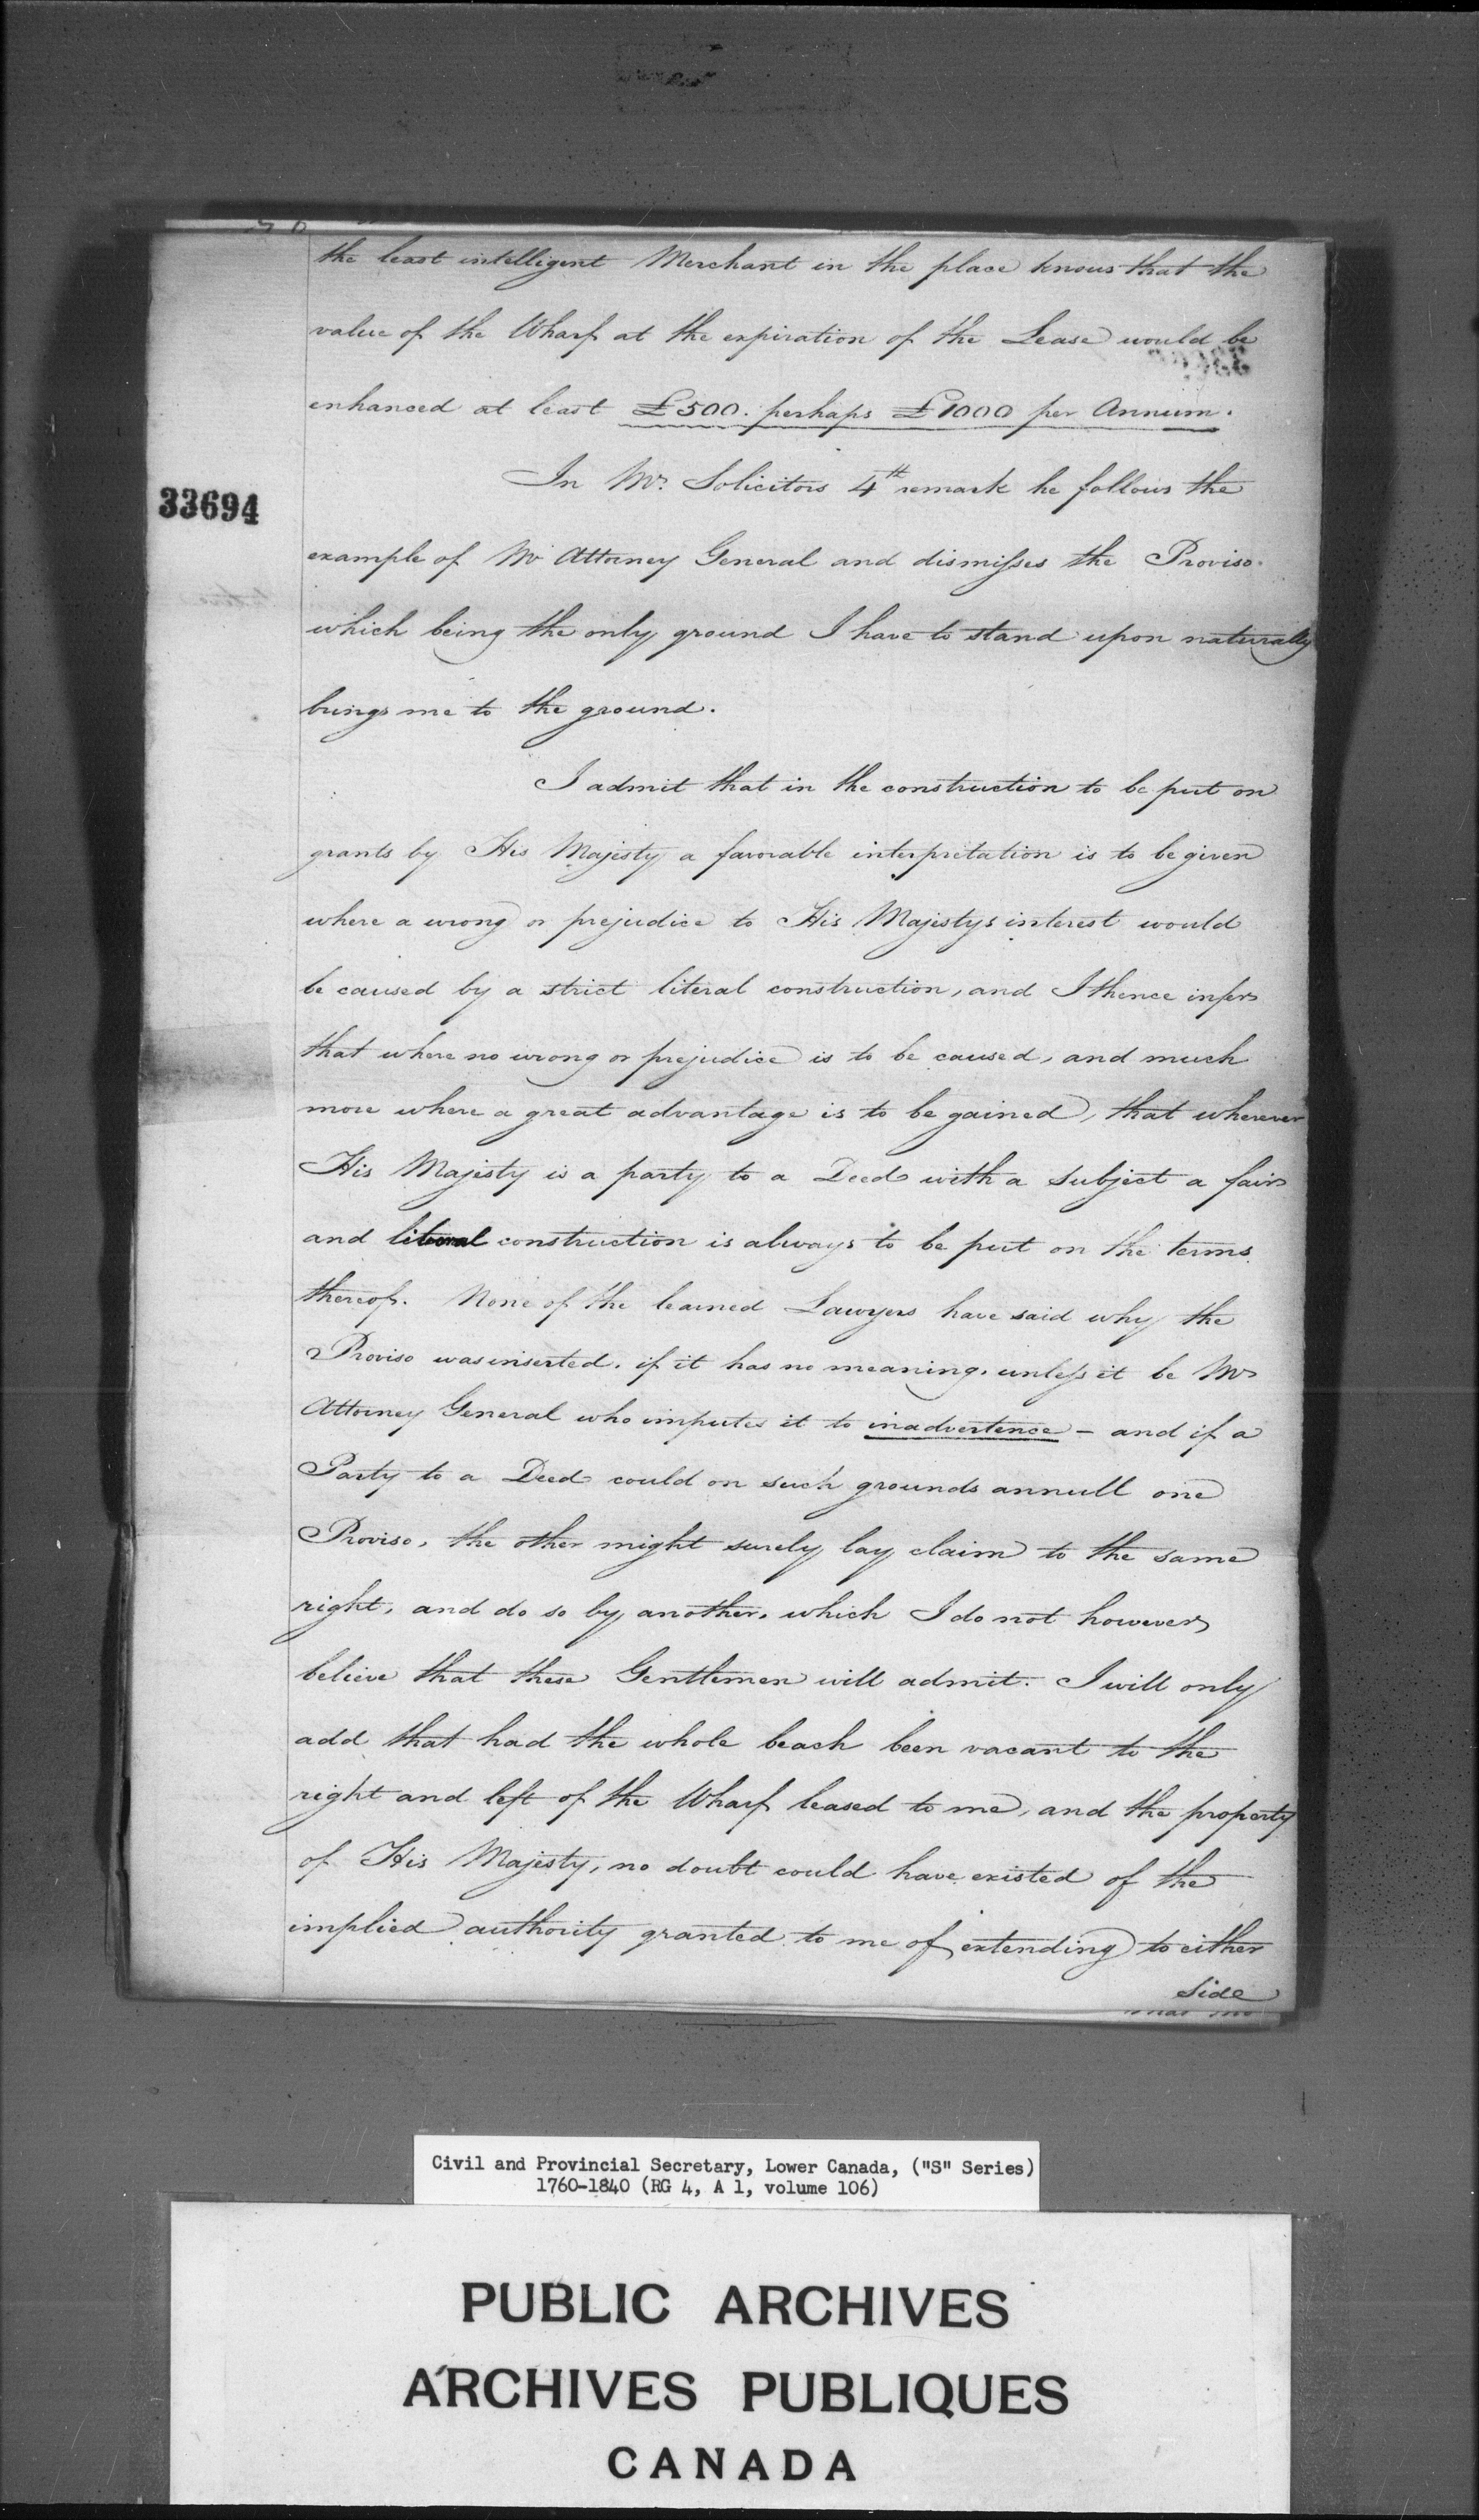 the least intelligent Merchant in the place knows that the
value of the Wharf at the expiration of the Lease would be
enhanced at least £500. perhaps £1000 per Annum.
33694
In Mr. Solicitors 4th remark he follows the
example of Mr Attorney General and dismisses the Proviso.
which being the only ground I have to stand upon naturally
brings me to the ground.
I admit that in the construction to be put on
grants by His Majesty a favorable interpretation is to be given
where a wrong or prejudice to His Majestys interest would
be caused by a strict literal construction, and I thence infer
that where no wrong or prejudice is to be caused, and much
more where a great advantage is to be gained, that wherever
His Majesty is a party to a Deed with a subject a fair
and liberal construction is always to be put on the terms
thereof. None of the learned Lawyers have said why the
Proviso was inserted. if it has no meaning. unless it be Mr
Attorney General who imputes it to inadvertence – and if a
Party to a Deed could on such grounds annull one
Proviso, the other might surely lay claim to the same
right, and do so by another. which I do not however
believe that these Gentlemen will admit. I will only
add that had the whole beach been vacant to the
right and left of the Wharf leased to me, and the property
of His Majesty, no doubt could have existed of the
implied authority granted to me of extending to either
Side
Civil and Provincial Secretary, Lower Canada, ("S" Series)
1760-1840 (RG 4, A 1, volume 106)
PUBLIC ARCHIVES
ARCHIVES PUBLIQUES
CANADA